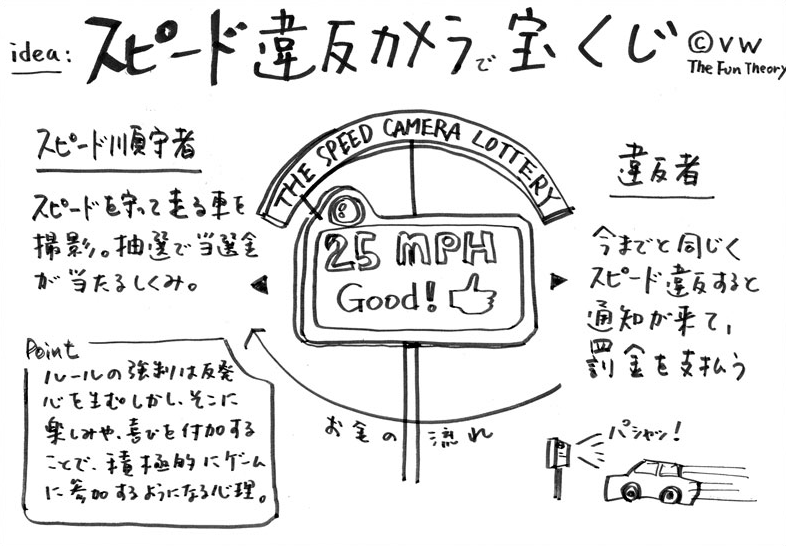 idea: スピード違反カメラで宝くじ ©VW
The Fun Theory
スピード順守者
スピードを守って走る車を
撮影。抽選で当選金
が当たるしくみ。
THE SPEED CAMERA LOTTERY
25 MPH
Good!
違反者
今までと同じく
スピード違反すると
通知が来て、
罰金を支払う
Point
ルールの強制は反発
心を生むしかし、そこに
楽しみや、喜びを付加する
ことで、積極的にゲーム
に参加するようになる心理。
お金の流れ
パシャッ!